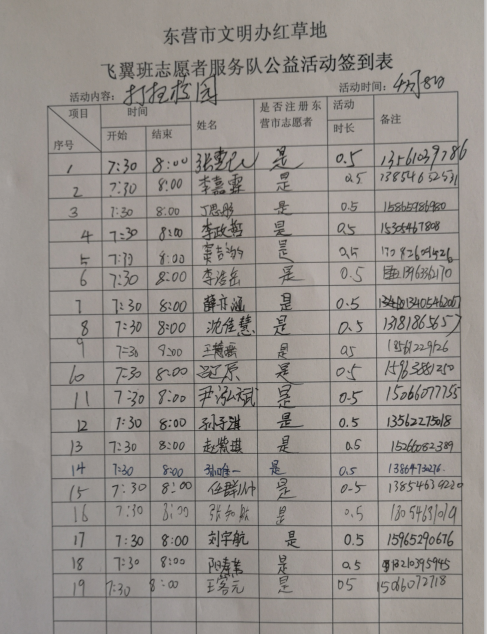 东营市文明办红草地
飞翼班志愿者服务队公益活动签到表
活动内容：打扫校园 活动时间：
项目 时间 姓名 是否注册东营市志愿者 活动时长 备注
序号 开始 结束
1 7:30 8:00 是 0.5 13561039786
2 7:30 8:00 李嘉霖 是 0.5
3 7:30 8:00 是 0.5 15865986980
4 7:30 8:00 李政哲 是 0.5 15305467808
5 7:30 8:00 是 0.5
6 7:30 8:00 李浩岳 是 0.5
7 7:30 8:00 薛亦涵 是 0.5
8 7:30 8:00 沈佳慧 是 0.5 13181865657
9 7:30 8:00 是 0.5
10 7:30 8:00 是 0.5 15963881250
11 7:30 8:00 尹泓斌 是 0.5 15066077755
12 7:30 8:00 孙子淇 是 0.5 13562275018
13 7:30 8:00 赵梦琪 是 0.5 15266082389
14 7:30 8:00 是 0.5
15 7:30 8:00 任群帅 是 0.5 13854639220
16 7:30 8:00 是 0.5
17 7:30 8:00 刘宇航 是 0.5 15965290676
18 7:30 8:00 是 0.5 18210395945
19 7:30 8:00 是 0.5 15066072718